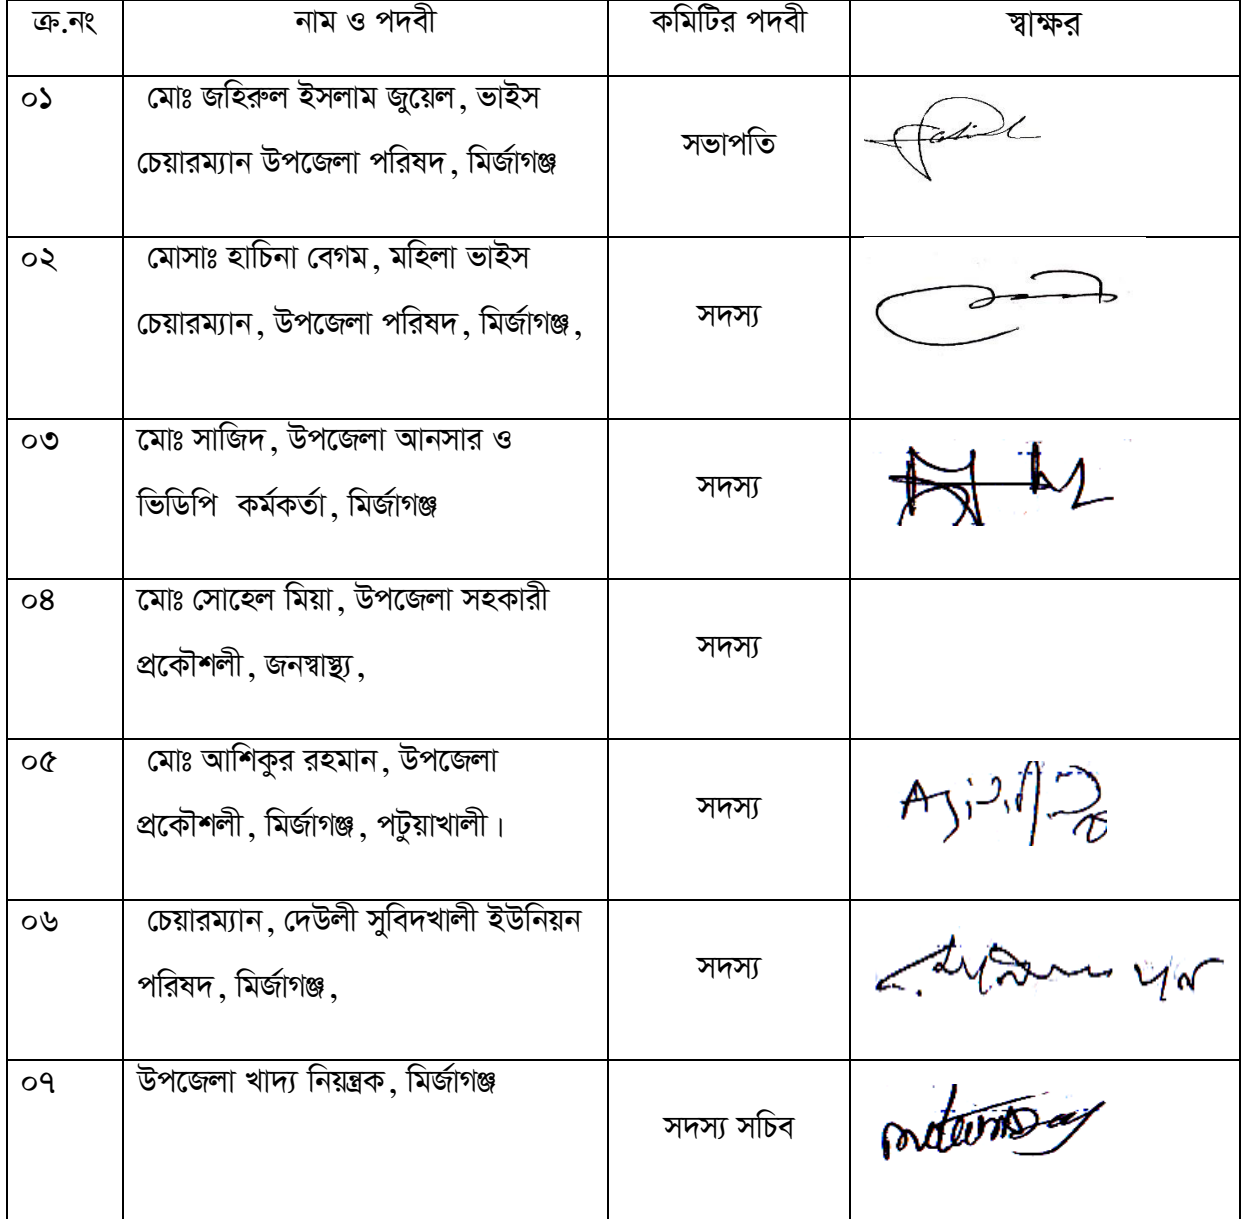 ক্র.নং নাম ও পদবী কমিটির পদবী স্বাক্ষর
০১ মোঃ জহিরুল ইসলাম জুয়েল, ভাইস
চেয়ারম্যান উপজেলা পরিষদ, মির্জাগঞ্জ
সভাপতি
০২ মোসাঃ হাচিনা বেগম, মহিলা ভাইস
চেয়ারম্যান, উপজেলা পরিষদ, মির্জাগঞ্জ,
সদস্য
০৩ মোঃ সাজিদ, উপজেলা আনসার ও
ভিডিপি কর্মকর্তা, মির্জাগঞ্জ
সদস্য
০৪ মোঃ সোহেল মিয়া, উপজেলা সহকারী
প্রকৌশলী, জনস্বাস্থ্য,
সদস্য
০৫ মোঃ আশিকুর রহমান, উপজেলা
প্রকৌশলী, মির্জাগঞ্জ, পটুয়াখালী।
সদস্য
০৬ চেয়ারম্যান, দেউলী সুবিদখালী ইউনিয়ন
পরিষদ, মির্জাগঞ্জ,
সদস্য
০৭ উপজেলা খাদ্য নিয়ন্ত্রক, মির্জাগঞ্জ
সদস্য সচিব